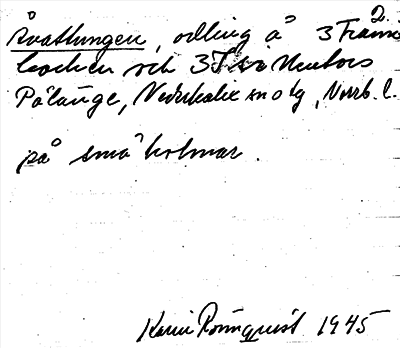 Åvattungen, odling å 3 Främs
2.
backen och 3
Pålänge, Nederkalix sn o tg, Norrb. l.
på små holmar.
Karin Rönnquist 1945